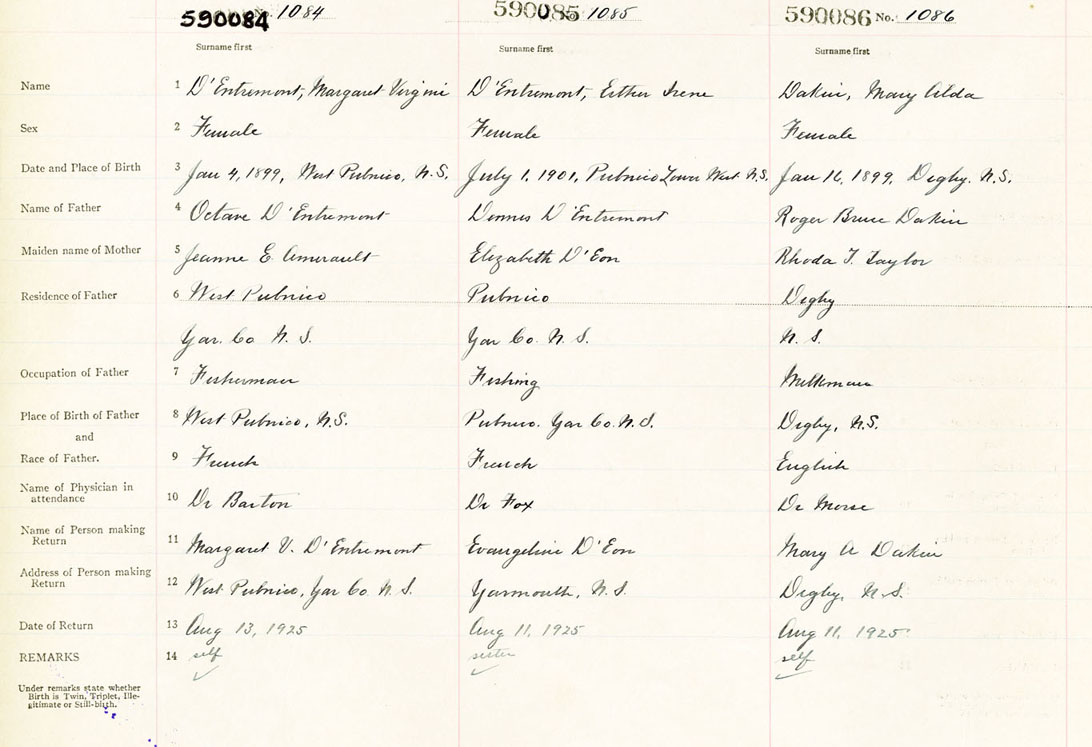 590084 No. 1084 590085 1085 590086 No. 1086
Surname first Surname first Surname first
Name 1 D'Entremont, Margaret Virginie D'Entremont, Esther Irene Dakin, Mary Alda
Sex 2 Female Female Female
Date and Place of Birth 3 Jan 4, 1899, West Pubnico, N.S. July 1, 1901, Pubnico Lower West N.S. Jan 16, 1899, Digby. N.S.
Name of Father 4 Octave D'Entremont Dennis D'Entremont Roger Bruce Dakin
Maiden name of Mother 5 Jeanne E. Amirault Elizabeth D'Eon Rhoda T. Taylor
Residence of Father 6 West Pubnico Pubnico Digby
Yar. Co N. S. Yar Co. N. S. N. S.
Occupation of Father 7 Fisherman Fishing Milkman
Place of Birth of Father 8 West Pubnico, N.S. Pubnico. Yar Co. N.S. Digby, N.S.
and
Race of Father. 9 French French English
Name of Physician in
attendance 10 Dr Barton Dr Fox Dr Morse
Name of Person making
Return 11 Margaret V. D'Entremont Evangeline D'Eon Mary A Dakin
Address of Person making
Return 12 West Pubnico, Yar Co N. S. Yarmouth, N. S. Digby, N. S.
Date of Return 13 Aug 13, 1925 Aug 11, 1925 Aug 11, 1925
REMARKS 14 self sister self
Under remarks state whether
Birth is Twin, Triplet, Ille-
gitimate or Still-birth.